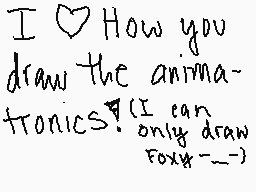 I ♡ How you
draw the anima-
tronics! (I can
only draw
Foxy -_-)